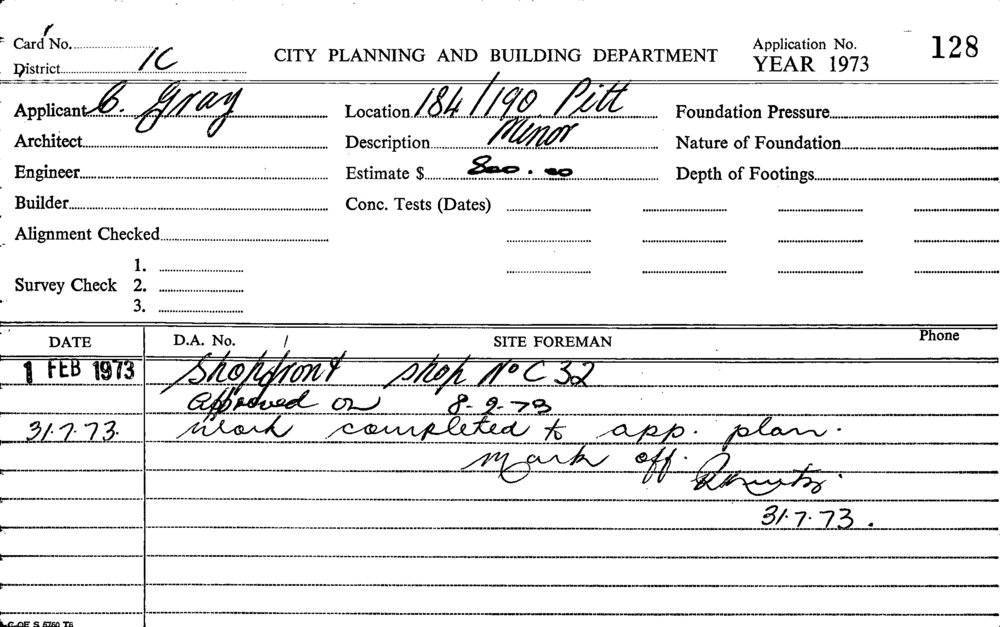 Card No.
District 1C
CITY PLANNING AND BUILDING DEPARTMENT
Application No. 128
YEAR 1973
Applicant C. Gray
Location 184/190 Pitt
Foundation Pressure
Architect
Description Minor
Nature of Foundation
Engineer
Estimate $ 800.00
Depth of Footings
Builder
Conc. Tests (Dates)
Alignment Checked
Survey Check
1.
2.
3.
DATE D.A. No. SITE FOREMAN Phone
1 FEB 1973 Shopfront shop No C 32
Approved on 8-2-73
31.7.73. Work completed to app. plan.
Mark off.
31.7.73.
C OF S 5760 T6